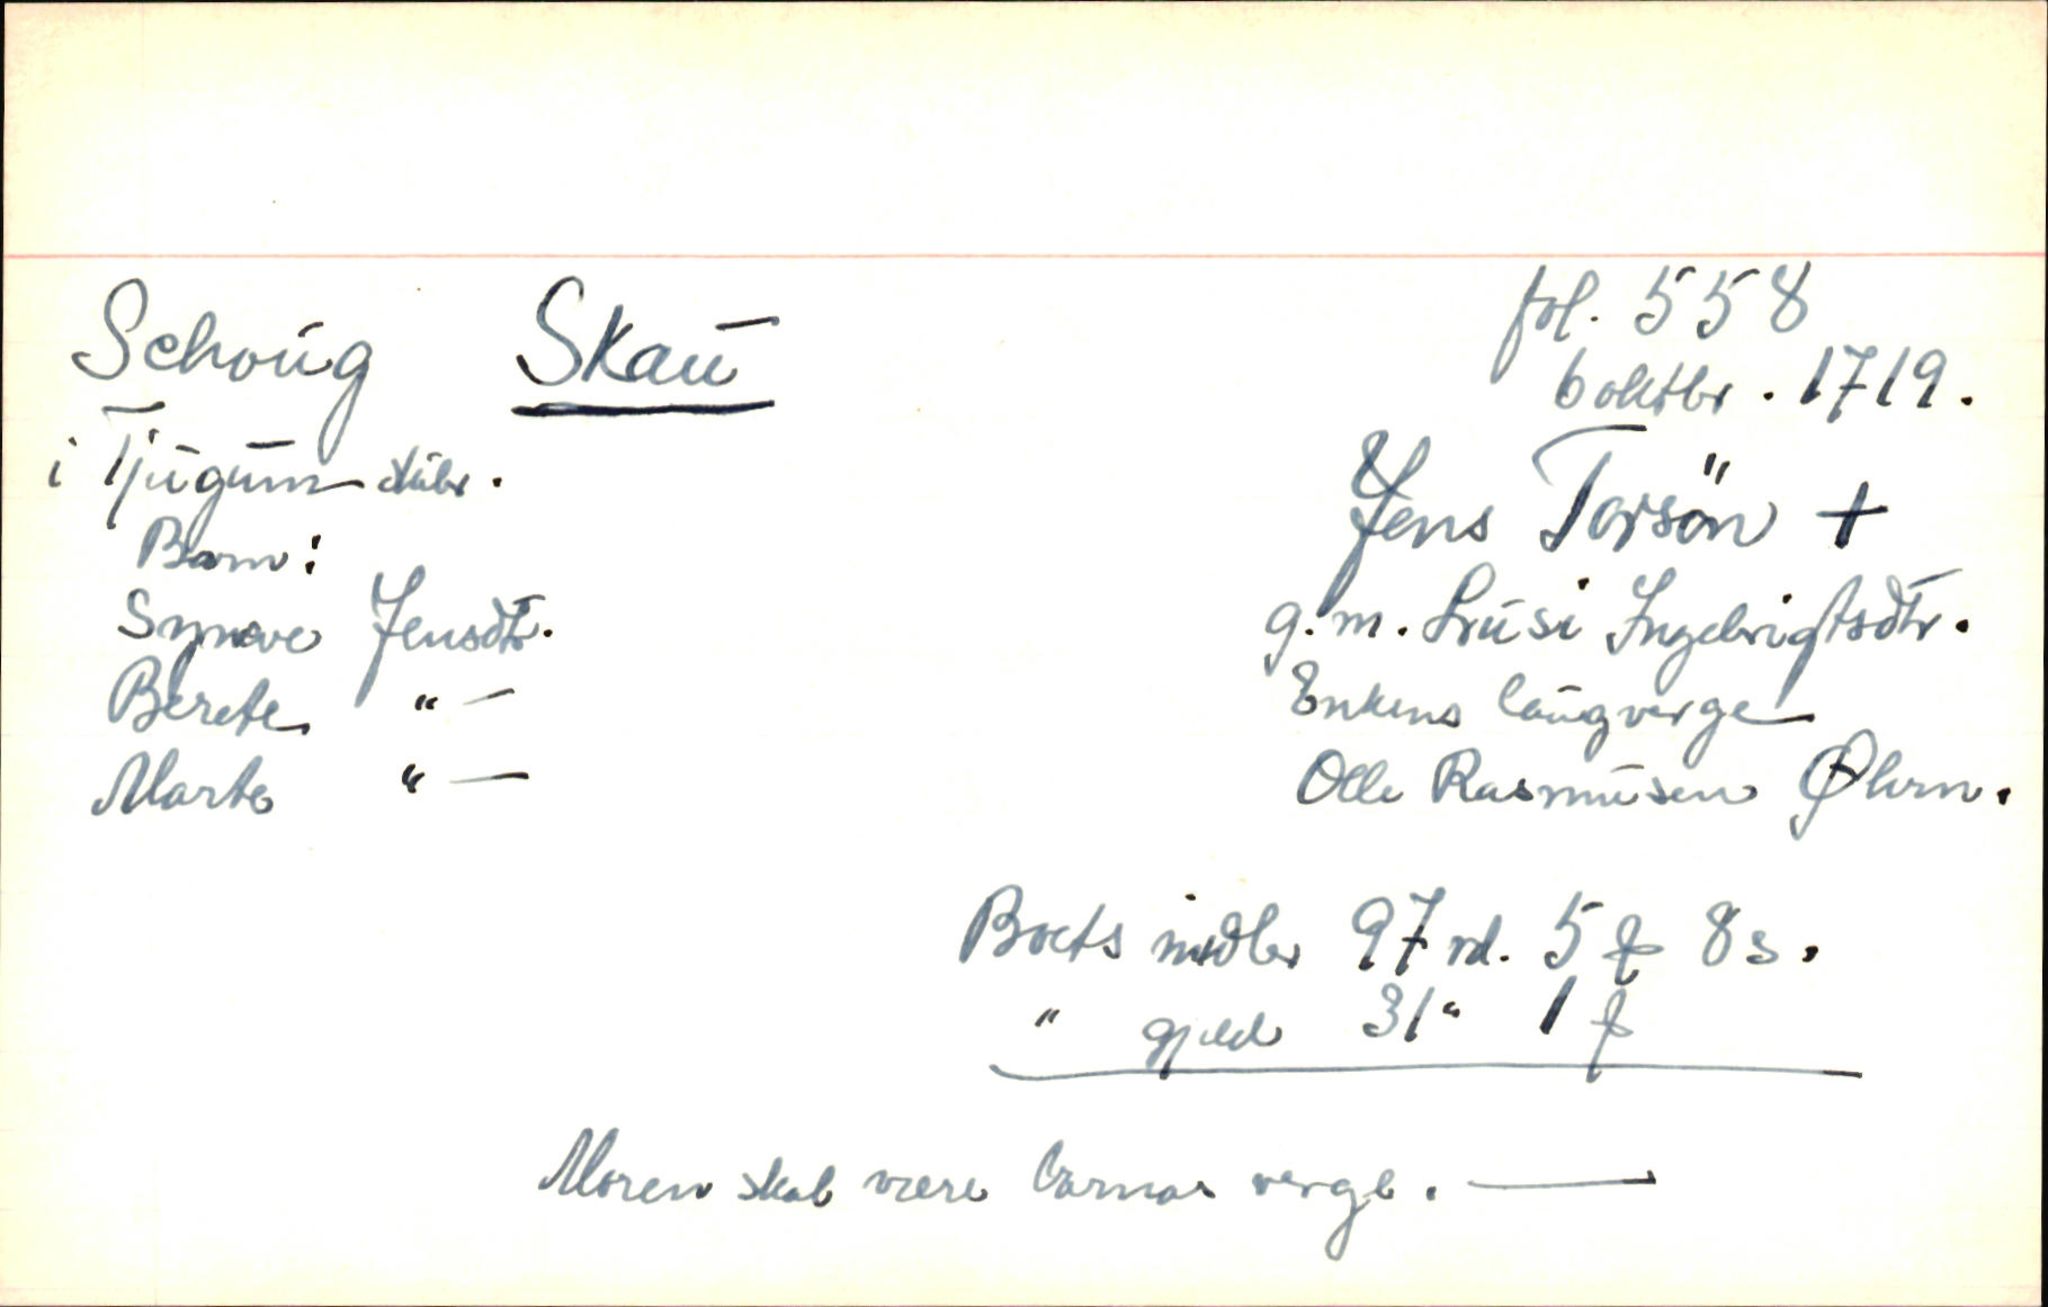 Schoug Skau
fol. 558
6 oktbr. 1719.
i Tjugum skibr.
Jens Torsön +
Barn:
g. m. Brusi Ingebrigtsdtr.
Synnøve Jensdtr.
Enkens laugverge
Berete " —
Olle Rasmusen Øhrn.
Marte " —
Boets midler 97 rd. 5 ƒ 8 s.
" gjeld 31 " 1 ƒ
Moren skal være barnas verge. —